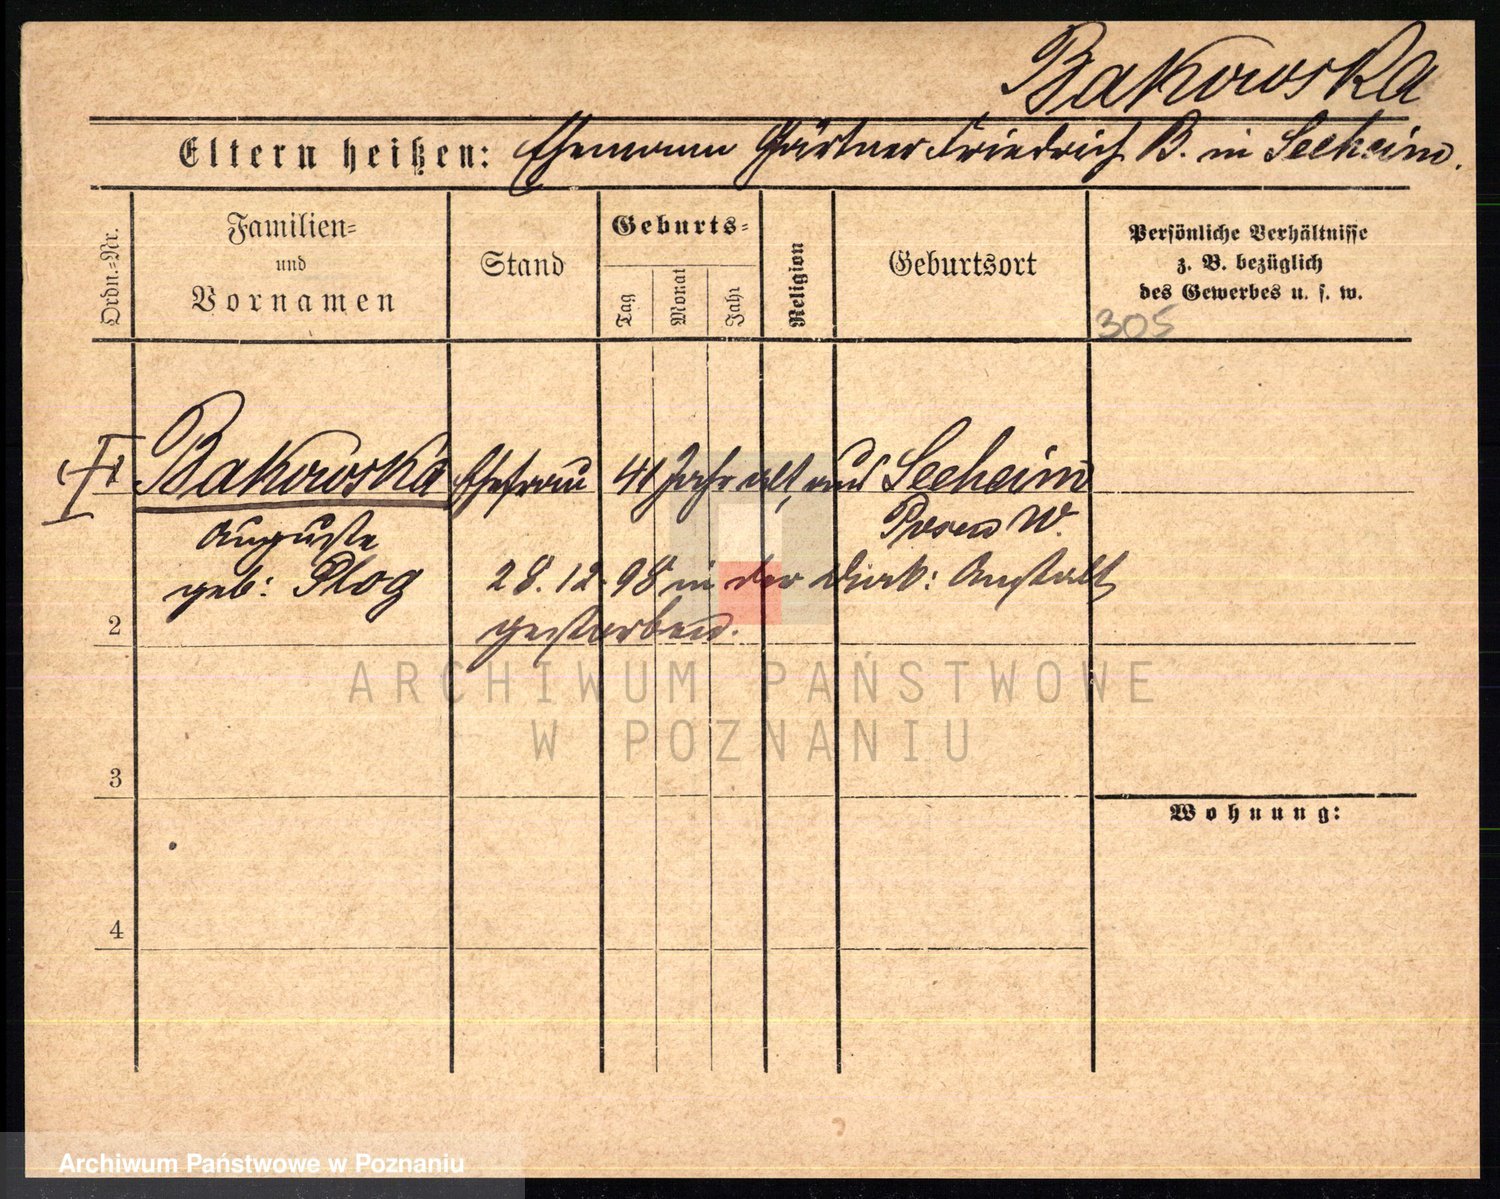 Bakowska
Eltern heißen: Ehemann Gärtner Friedrich B. in Seeheim.
Ordn.-Nr.
Familien-
und
Vornamen
Stand
Geburts-
Tag
Monat
Jahr
Religion
Geburtsort
Persönliche Verhältnisse
z. B. bezüglich
des Gewerbes u. s. w.
305
Bakowska Ehefrau 41 Jahr alt, aus Seeheim
Auguste Posen W.
geb: Plog 28.12.98 in der Diak: Anstalt
2 gestorben.
ARCHIWUM PAŃSTWOWE
W POZNANIU
3
Wohnung:
4
Archiwum Państwowe w Poznaniu